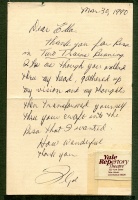 Mar. 30, 1990
Dear Ella
Thank you for Risa in
Two Trains Running
It's as though you walked
thru my head, gathered up
my vision and my thoughts
then transformed yourself
thru your craft into the
Risa that I wanted
How wonderful
Thank you
Yale
Repertory
Theatre